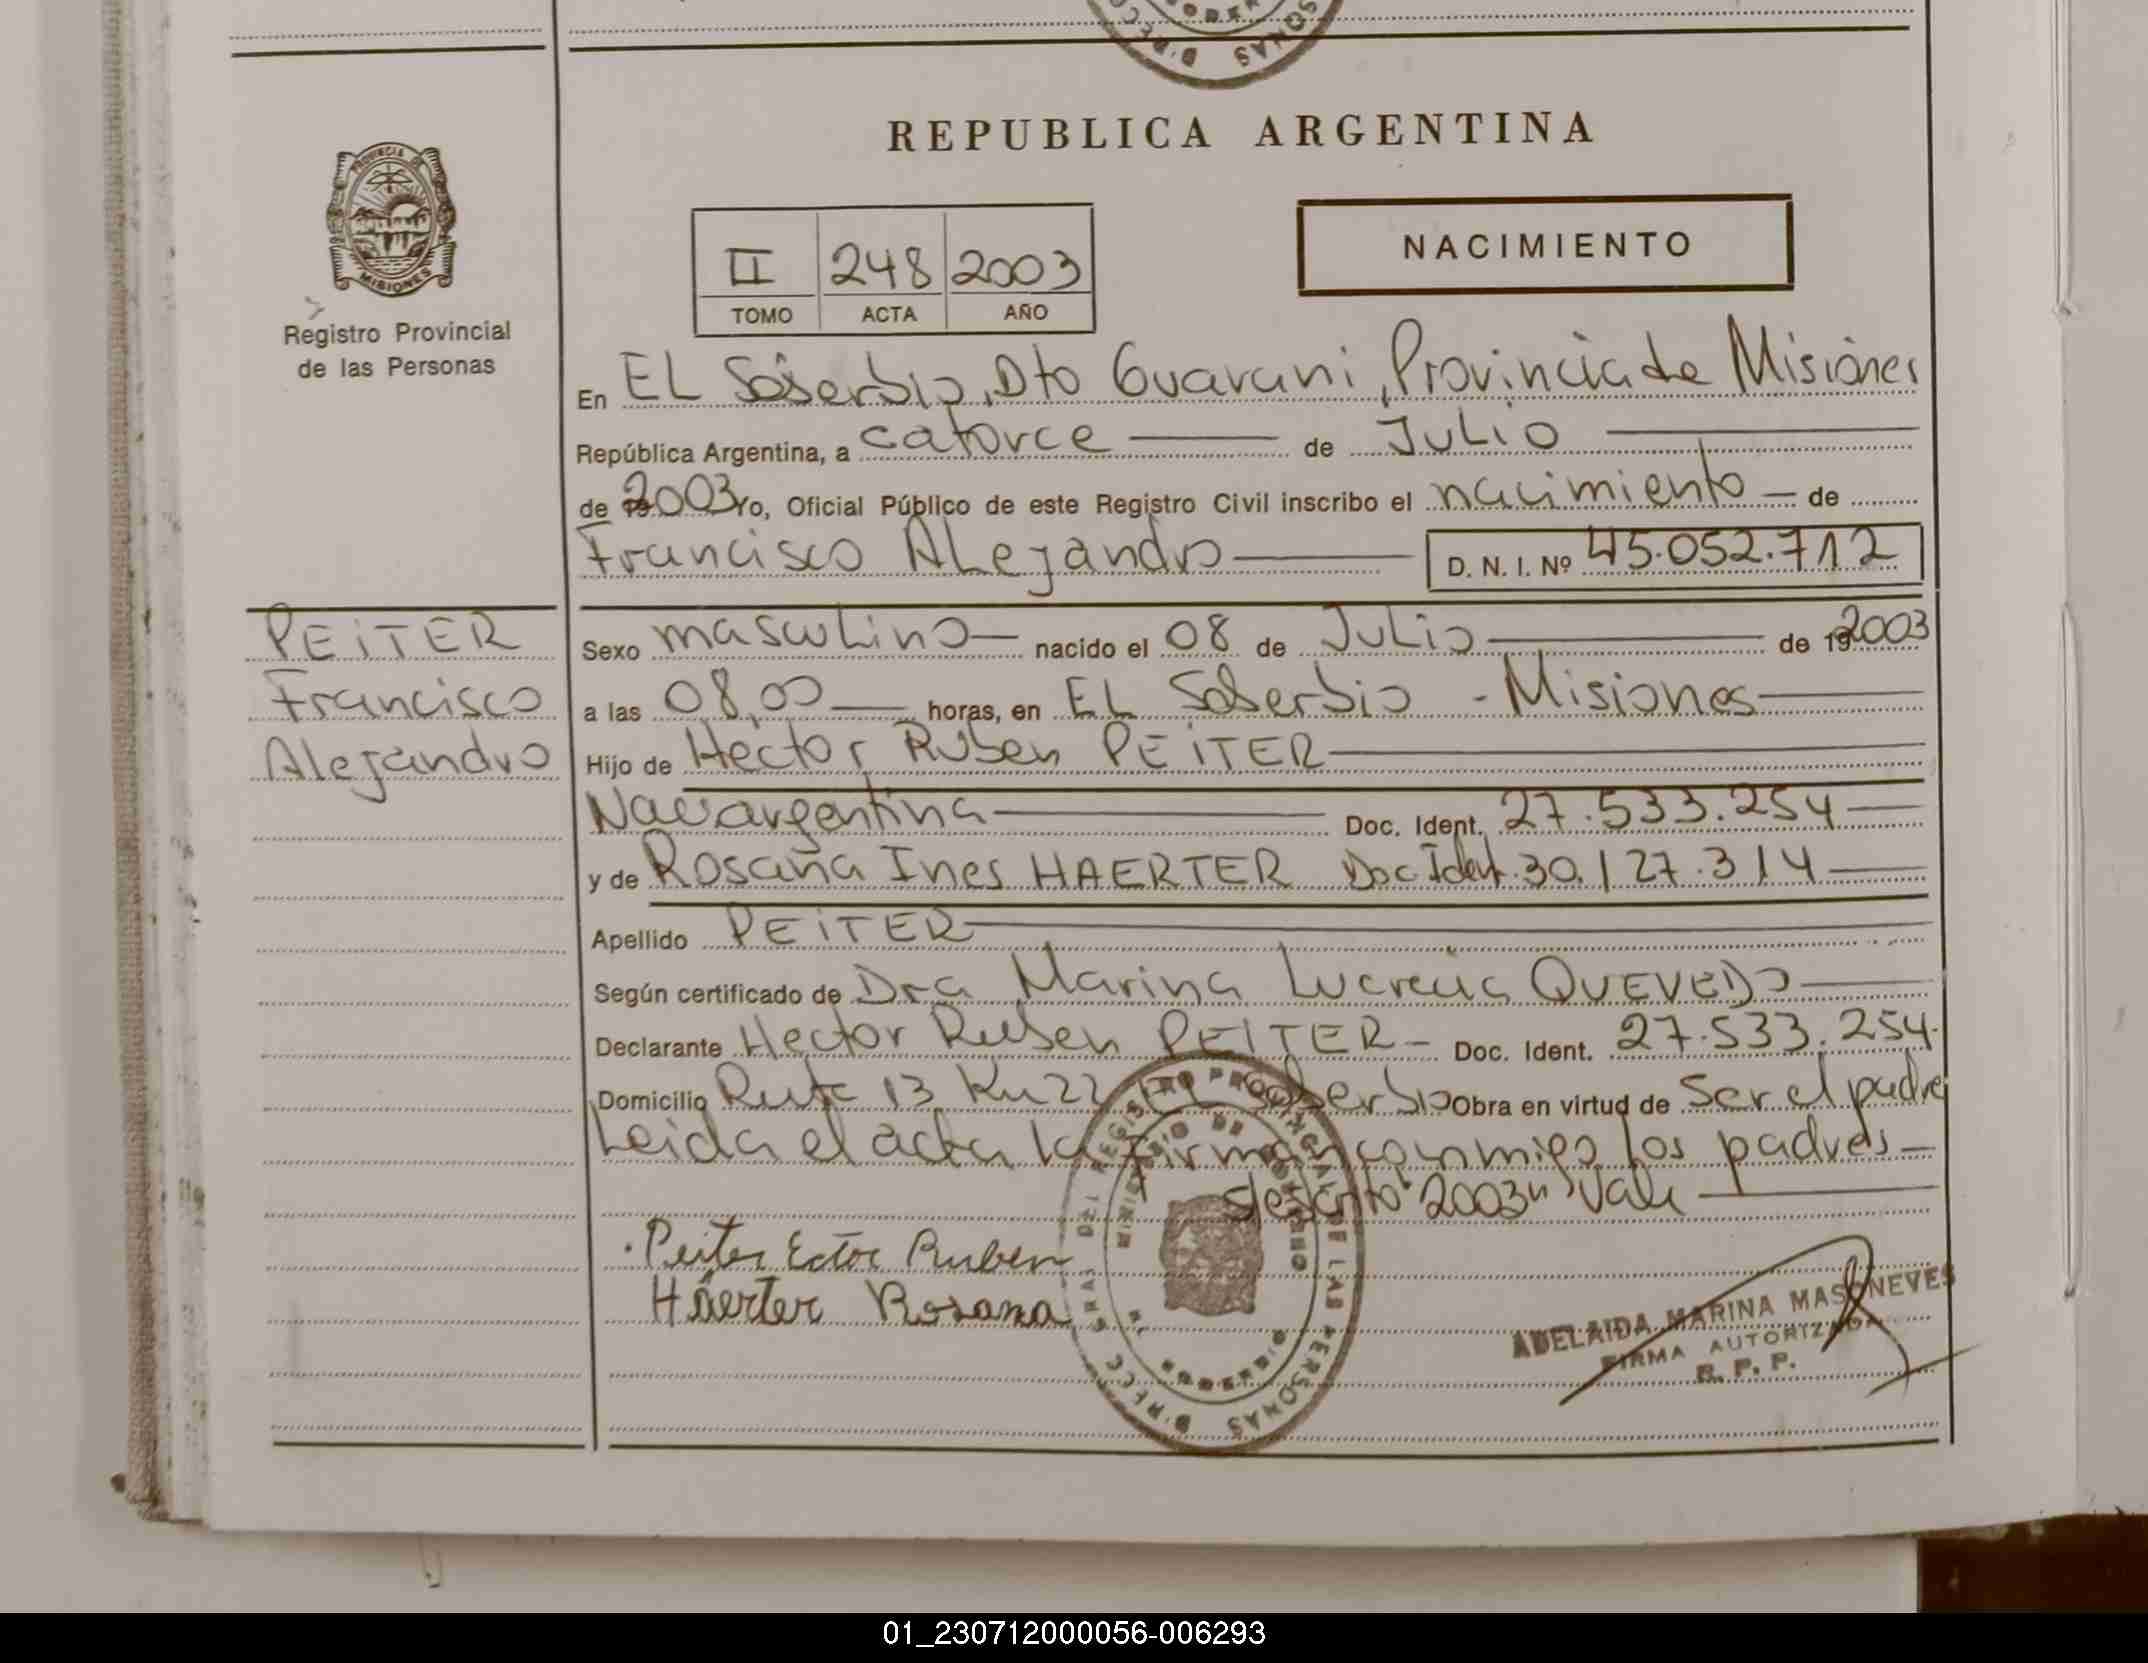 REPUBLICA ARGENTINA
PROVINCIA DE MISIONES
Registro Provincial
de las Personas
II 248 2003
TOMO ACTA AÑO
NACIMIENTO
En EL Soberbio, Dto Guarani, Provincia de Misiones
República Argentina, a catorce de Julio
de 2003 Yo, Oficial Público de este Registro Civil inscribo el nacimiento de
Francisco ALejandro D. N. I. Nº 45.052.712
PEITER
Francisco
Alejandro
Sexo mascuLino nacido el 08 de JuLio de 19 2003
a las 08,00 horas, en EL Soberbio - Misiones
Hijo de Hector Ruben PEITER
Nac argentina Doc. Ident. 27.533.254
y de Rosana Ines HAERTER Doc Ident. 30.127.314
Apellido PEITER
Según certificado de Dra Marina Lucrecia QUEVEDO
Declarante Hector Ruben PEITER - Doc. Ident. 27.533.254.
Domicilio Ruta 13 Km 22 EL Soberbio Obra en virtud de ser el padre
Leida el acta la firman conmigo los padres
"2003" Vale
Peiter Ector Ruben
Häerter Rosana
REGISTRO PROVINCIAL DE LAS PERSONAS
MINISTERIO DE GOBIERNO
ADELAIDA MARINA MASONEVES
FIRMA AUTORIZADA
R. P. P.
01_230712000056-006293